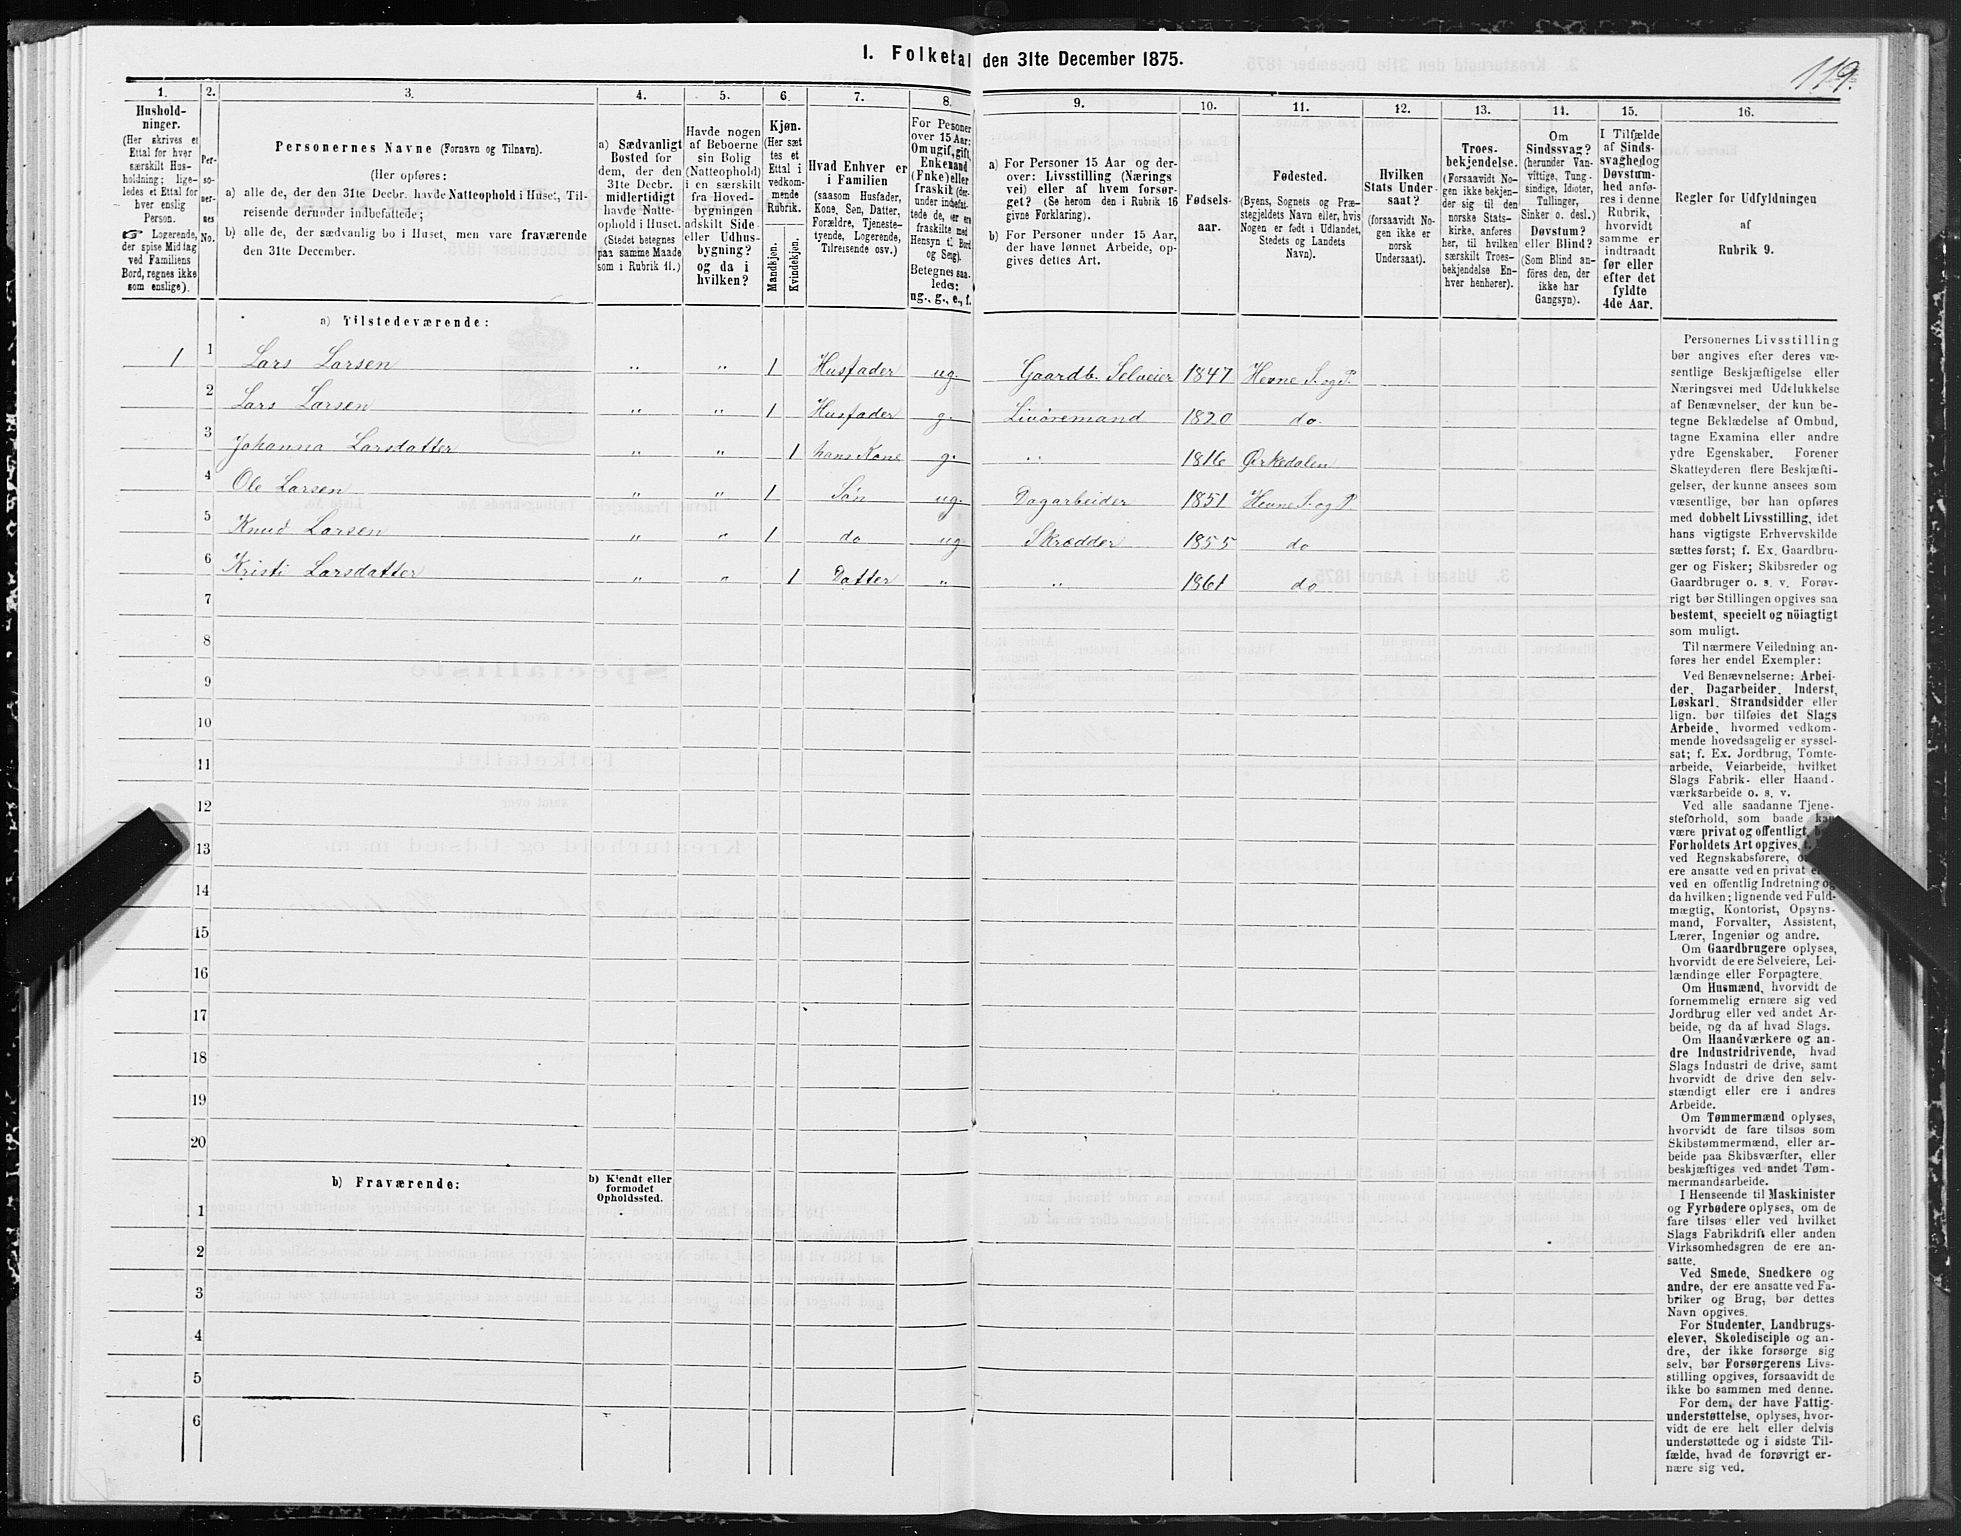 I. Folketal den 31te December 1875.
119.
1.
Hushold-
ninger.
(Her skrives et
Ettal for hver
særskilt Hus-
holdning; lige-
ledes et Ettal for
hver enslig
Person.
☞ Logerende,
der spise Middag
ved Familiens
Bord, regnes ikke
som enslige).
2.
Per-
so-
ner-
nes
No.
3.
Personernes Navne (Fornavn og Tilnavn).
(Her opføres:
a) alle de, der den 31te Decbr. havde Natteophold i Huset, Til-
reisende derunder indbefattede;
b) alle de, der sædvanlig bo i Huset, men vare fraværende
den 31te December.
4.
a) Sædvanligt
Bosted for
dem, der den
31te Decbr.
midlertidigt
havde Natte-
ophold i Huset.
(Stedet betegnes
paa samme Maade
som i Rubrik 11.)
5.
Havde nogen
af Beboerne
sin Bolig
(Natteophold)
i en særskilt
fra Hoved-
bygningen
adskilt Side-
eller Udhus-
bygning?
og da i
hvilken?
6.
Kjøn.
(Her sæt
tes et
Ettal i
vedkom-
mende
Rubrik.
Mandkjøn.
Kvindekjøn.
7.
Hvad Enhver er
i Familien
(saasom Husfader,
Kone, Søn, Datter,
Forældre, Tjeneste-
tyende, Logerende,
Tilreisende osv.)
8.
For Pesoner
over 15 Aar:
Om ugif, gift,
Enkemand
(Enke) eller
fraskilt (der-
under indbefat-
tede de, der ere
fraskilte med
Hensyn t. Bord
og Seng).
Betegnes saa-
ledes:
ug., g., e., f.
9.
a) For Personer 15 Aar og der-
over: Livsstilling (Nærings
vei) eller af hvem forsør-
get? (Se herom den i Rubrik 16
givne Forklaring).
b) For Personer under 15 Aar,
der have lønnet Arbeide, op-
gives dettes Art.
10.
Fødsels-
aar.
11.
Fødested.
(Byens, Sognets og Præ-
stegjeldets Navn eller, hvis
Nogen er født i Udlandet,
Stedets og Landets
Navn).
12.
Hvilken
Stats Under-
saat?
(forsaavidt No-
gen ikke er
norsk
Undersaat).
13.
Troes-
bekjendelse.
(Forsaavidt No-
gen ikke bekjen-
der sig til den
norske Stats-
kirke, anføres
her, til hvilken
særskilt Troes-
bekjendelse En-
hver henhører).
14.
Om
Sindssvag?
(herunder Van-
vittige, Tung-
sindige, Idioter,
Tullinger,
Sinker o. desl.)
Døvstum?
eller Blind?
(Som Blind an-
føres den, der
ikke har
Gangsyn).
15.
I Tilfælde
af Sinds-
svaghed og
Døvstum-
hed anfø-
res i denne
Rubrik,
hvorvidt
samme er
indtraadt
før eller
efter det
fyldte
4de Aar.
16.
Regler for Udfyldningen
af
Rubrik 9.
a) Tilstedeværende:
1 1 Lars Larsen " " 1 Husfader ug. Gaardb. Selveier 1847 Hevne S. og P.
2 Lars Larsen " " 1 Husfader g. Livøremand 1820 do.
3 Johanna Larsdatter " " 1 hans Kone g. " 1816 Ørkedalen
4 Ole Larsen " " 1 Søn ug. Dagarbeider 1851 Hevne S. og P
5 Knud Larsen " " 1 do ug Skrædder 1855 do
6 Kristi Larsdatter " " 1 Datter " " 1861 do
7
8
9
10
11
12
13
14
15
16
17
18
19
20
b) Fraværende:
b) Kjendt eller
formodet
Opholdssted.
1
2
3
4
5
6
Personernes Livsstilling
bør angives efter deres væ-
sentlige Beskjæftigelse eller
Næringsvei med Udelukkelse
af Benævnelser, der kun be-
tegne Beklædelse af Ombud,
tagne Examina eller andre
ydre Egenskaber. Forener
Skatteyderen flere Beskjæfti-
gelser, der kunne ansees som
væsentlige, bør han opføres
med dobbelt Livsstilling, idet
hans vigtigste Erhvervskilde
sættes først; f. Ex. Gaardbru-
ger og Fisker; Skibsreder og
Gaardbruger o. s. v. Forøv-
rigt bør Stillingen opgives saa
bestemt, specielt og nöiagtigt
som muligt.
Til nærmere Veiledning an-
føres her endel Exempler:
Ved Benævnelserne: Arbei-
der, Dagarbeider, Inderst,
Løskarl, Strandsidder eller
lign. bør tilføies det Slags
Arbeide, hvormed vedkom-
mende hovedsagelig er syssel-
sat; f. Ex. Jordbrug, Tomte-
arbeide, Veiarbeide, hvilket
Slags Fabrik- eller Haand-
værksarbeide o. s. v.
Ved alle saadanne Tjene-
steforhold, som baade kan
være privat og offentligt,
Forholdets Art opgives,
ved Regnskabsførere,
ere ansatte ved en privat
ved en offentlig Indretning og
da hvilken; lignende ved Fuld-
mægtig, Kontorist, Opsyns-
mand, Forvalter, Assistent,
Lærer, Ingeniør og andre.
Om Gaardbrugere oplyses,
hvorvidt de ere Selveiere, Lei-
lændinge eller Forpagtere.
Om Husmænd, hvorvidt de
fornemmelig ernære sig ved
Jordbrug eller ved andet Ar-
beide, og da af hvad Slags.
Om Haandværkere og an-
dre Industridrivende, hvad
Slags Industri de drive, samt
hvorvidt de drive den selv-
stændigt eller ere i andres
Arbeide.
Om Tømmermænd oplyses,
hvorvidt de fare tilsøs som
Skibstømmermænd, eller ar-
beide paa Skibsværfter, eller
beskjæftiges ved andet Tøm-
mermandsarbeide.
I Henseende til Maskinister
og Fyrbødere oplyses, om de
fare tilsøs eller ved hvilket
Slags Fabrikdrift eller anden
Virksomhedsgren de ere an-
satte.
Ved Smede, Snedkere og
andre, der ere ansatte ved Fa-
briker og Brug, bør dettes
Navn opgives.
For Studenter, Landbrugs-
elever, Skoledisciple og an-
dre, der ikke forsørge sig
selv, bør Forsørgerens Livs-
stilling opgives, forsaavidt de
ikke bo sammen med denne.
For dem, der have Fattig-
understøttelse, oplyses, hvor-
vidt de ere helt eller delvis
understøttede og i sidste Til-
fælde, hvad de forøvrigt er-
nære sig ved.